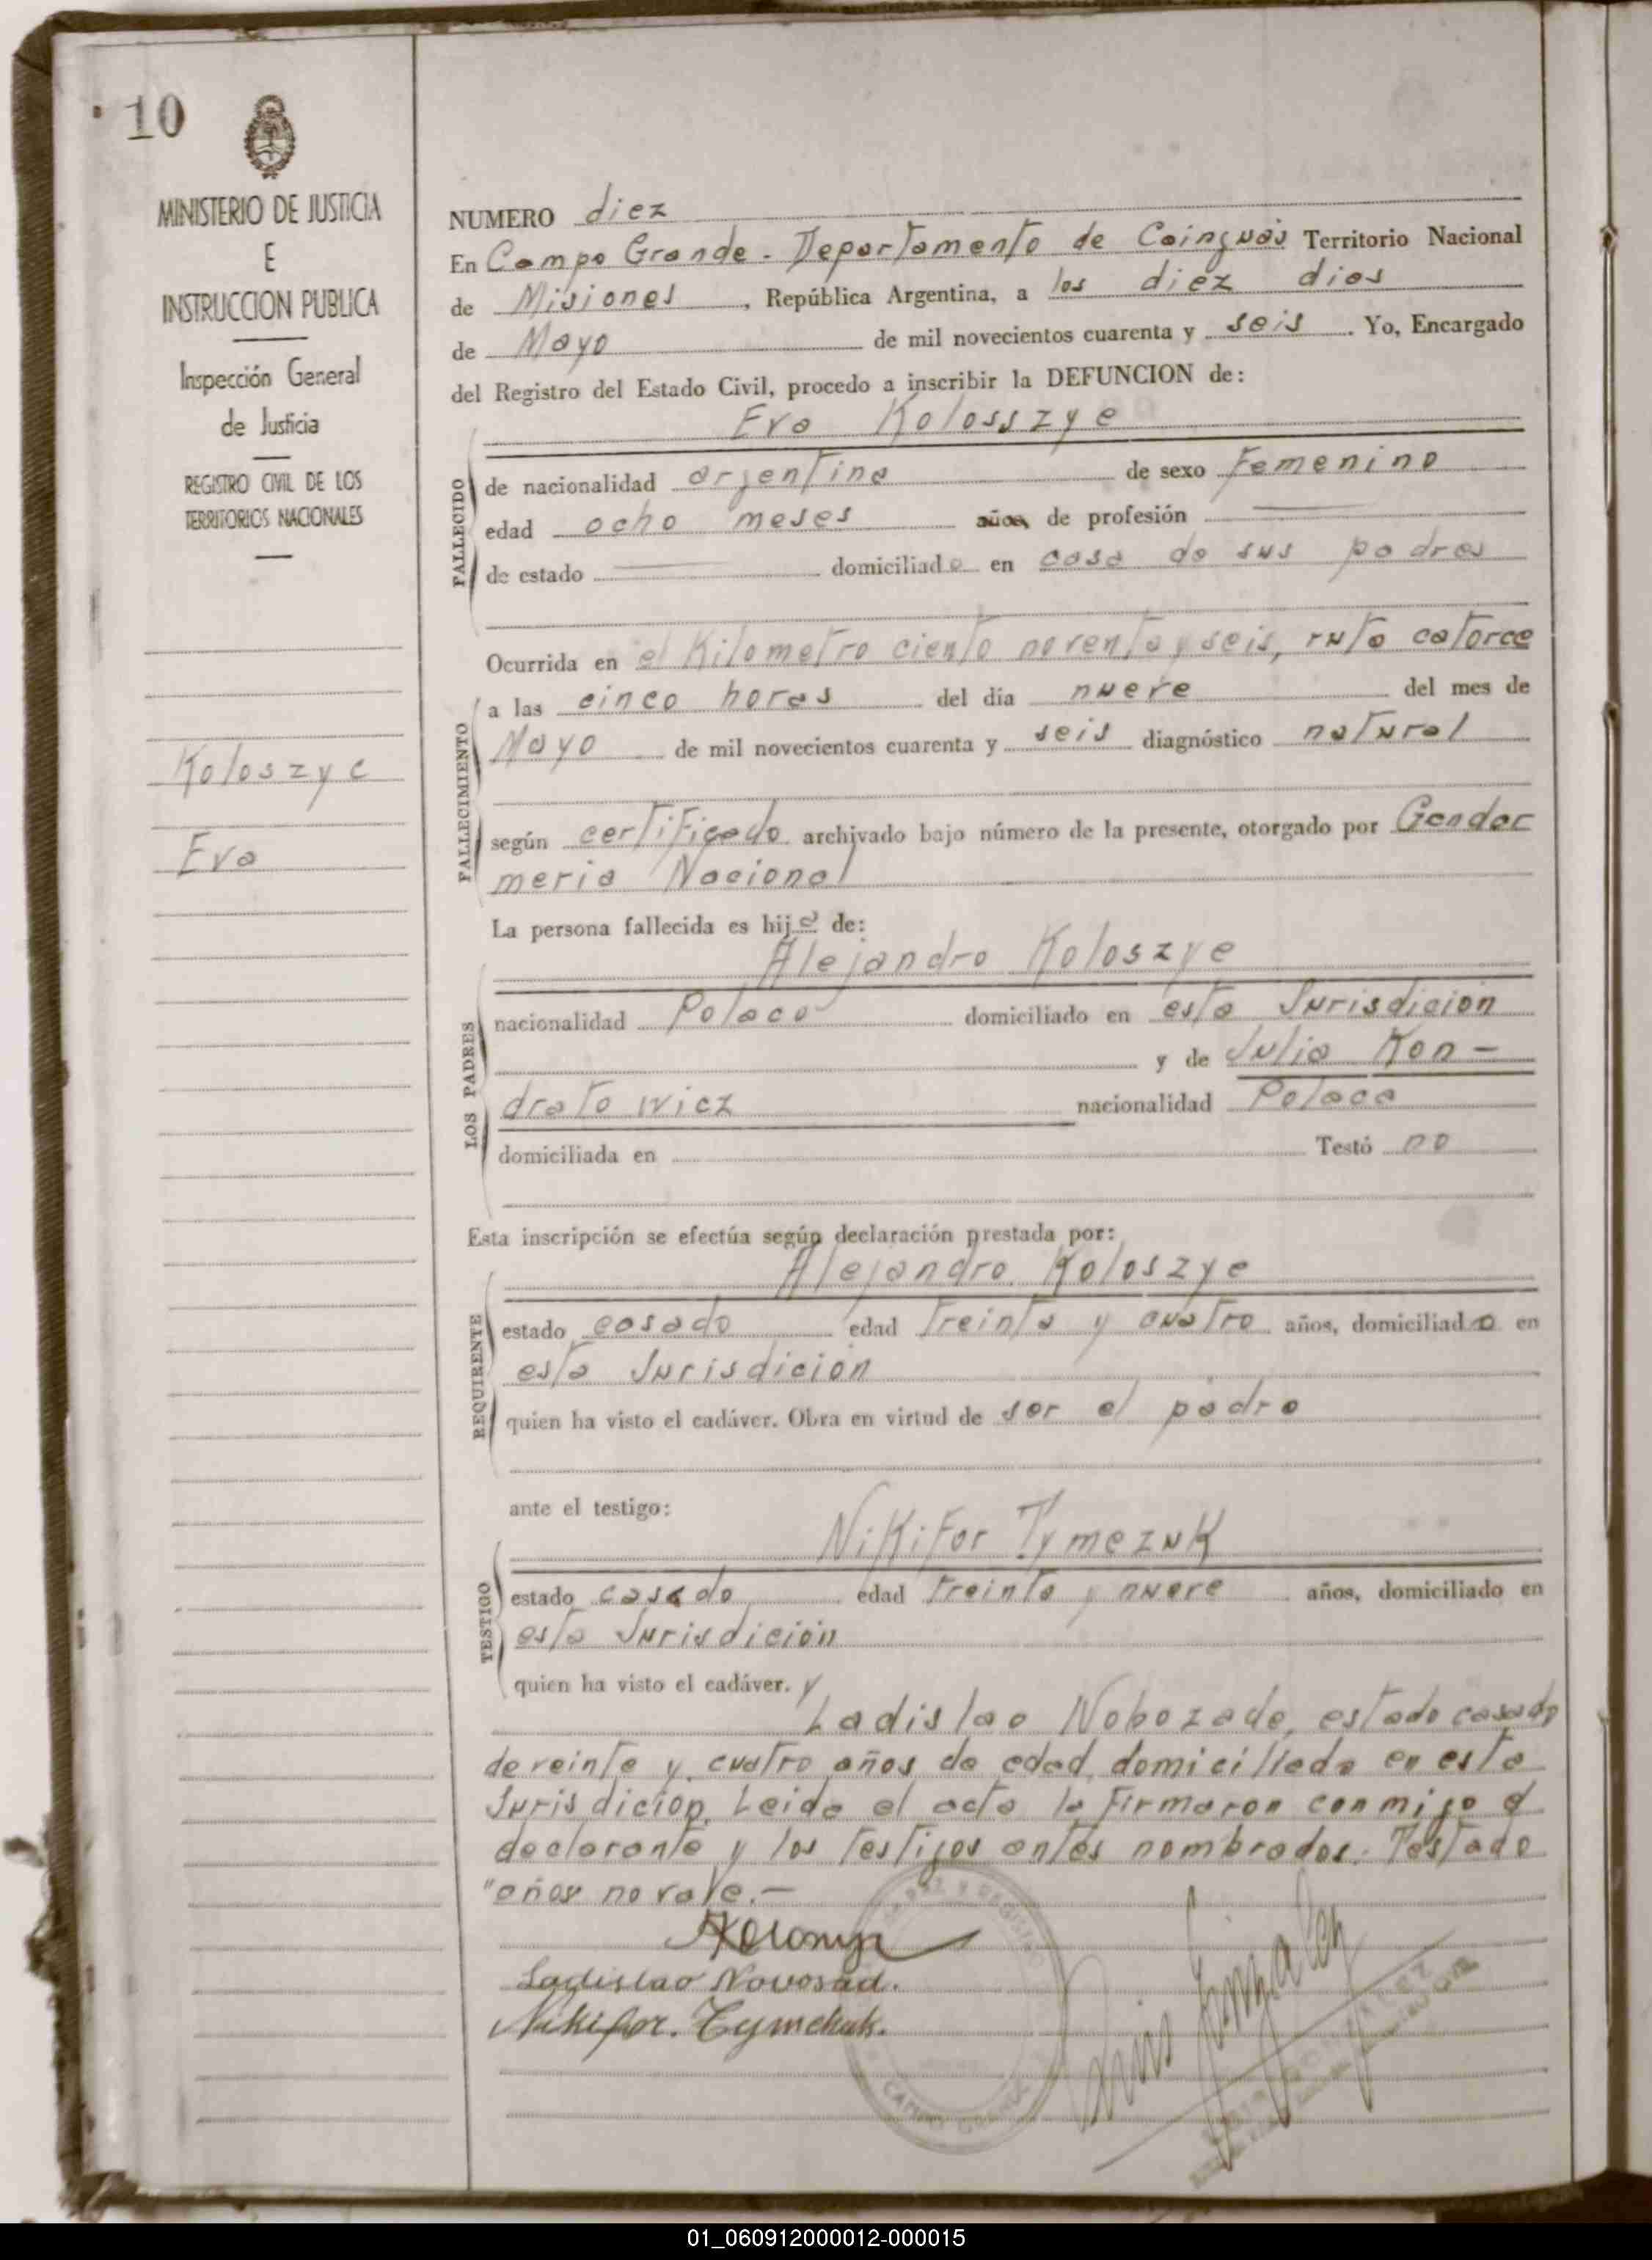 10
MINISTERIO DE JUSTICIA
E
INSTRUCCION PUBLICA
Inspección General
de Justicia
REGISTRO CIVIL DE LOS
TERRITORIOS NACIONALES
Koloszyc
Eva
NUMERO diez
En Campo Grande - Departamento de Cainguás Territorio Nacional
de Misiones, República Argentina, a los diez dias
de Mayo de mil novecientos cuarenta y seis. Yo, Encargado
del Registro del Estado Civil, procedo a inscribir la DEFUNCION de:
Eva Kolosszye
FALLECIDO
de nacionalidad argentina de sexo Femenino
edad ocho meses años, de profesión
de estado domiciliada en casa de sus padres
Ocurrida en el Kilometro ciento noventa y seis, ruta catorce
FALLECIMIENTO
a las cinco horas del día nueve del mes de
Mayo de mil novecientos cuarenta y seis diagnóstico natural
según certificado archivado bajo número de la presente, otorgado por Gendar
meria Nacional
La persona fallecida es hija de:
Alejandro Koloszye
LOS PADRES
nacionalidad Polaco domiciliado en esta Jurisdición
y de Julia Kon-
dratowicz nacionalidad Polaca
domiciliada en Testó no
Esta inscripción se efectúa según declaración prestada por:
Alejandro Koloszye
REQUIRENTE
estado casado edad treinta y cuatro años, domiciliado en
esta Jurisdición
quien ha visto el cadáver. Obra en virtud de ser el padre
ante el testigo:
Nikifor Tymezuk
TESTIGO
estado casado edad treinta y nueve años, domiciliado en
esta Jurisdición
quien ha visto el cadáver. y
Ladislao Nobozade, estado casado
de veinte y cuatro años de edad, domicilledo en esta
Jurisdicion. Leida el acta la Firmaron conmigo el
declarante y los testigos antes nombrados. Testado
"años" no vale.-
Ladislao Novosad.
Nikifor. Tymchuk.
Luis González
CAMPO GRANDE
LUIS GONZALEZ
01_060912000012-000015